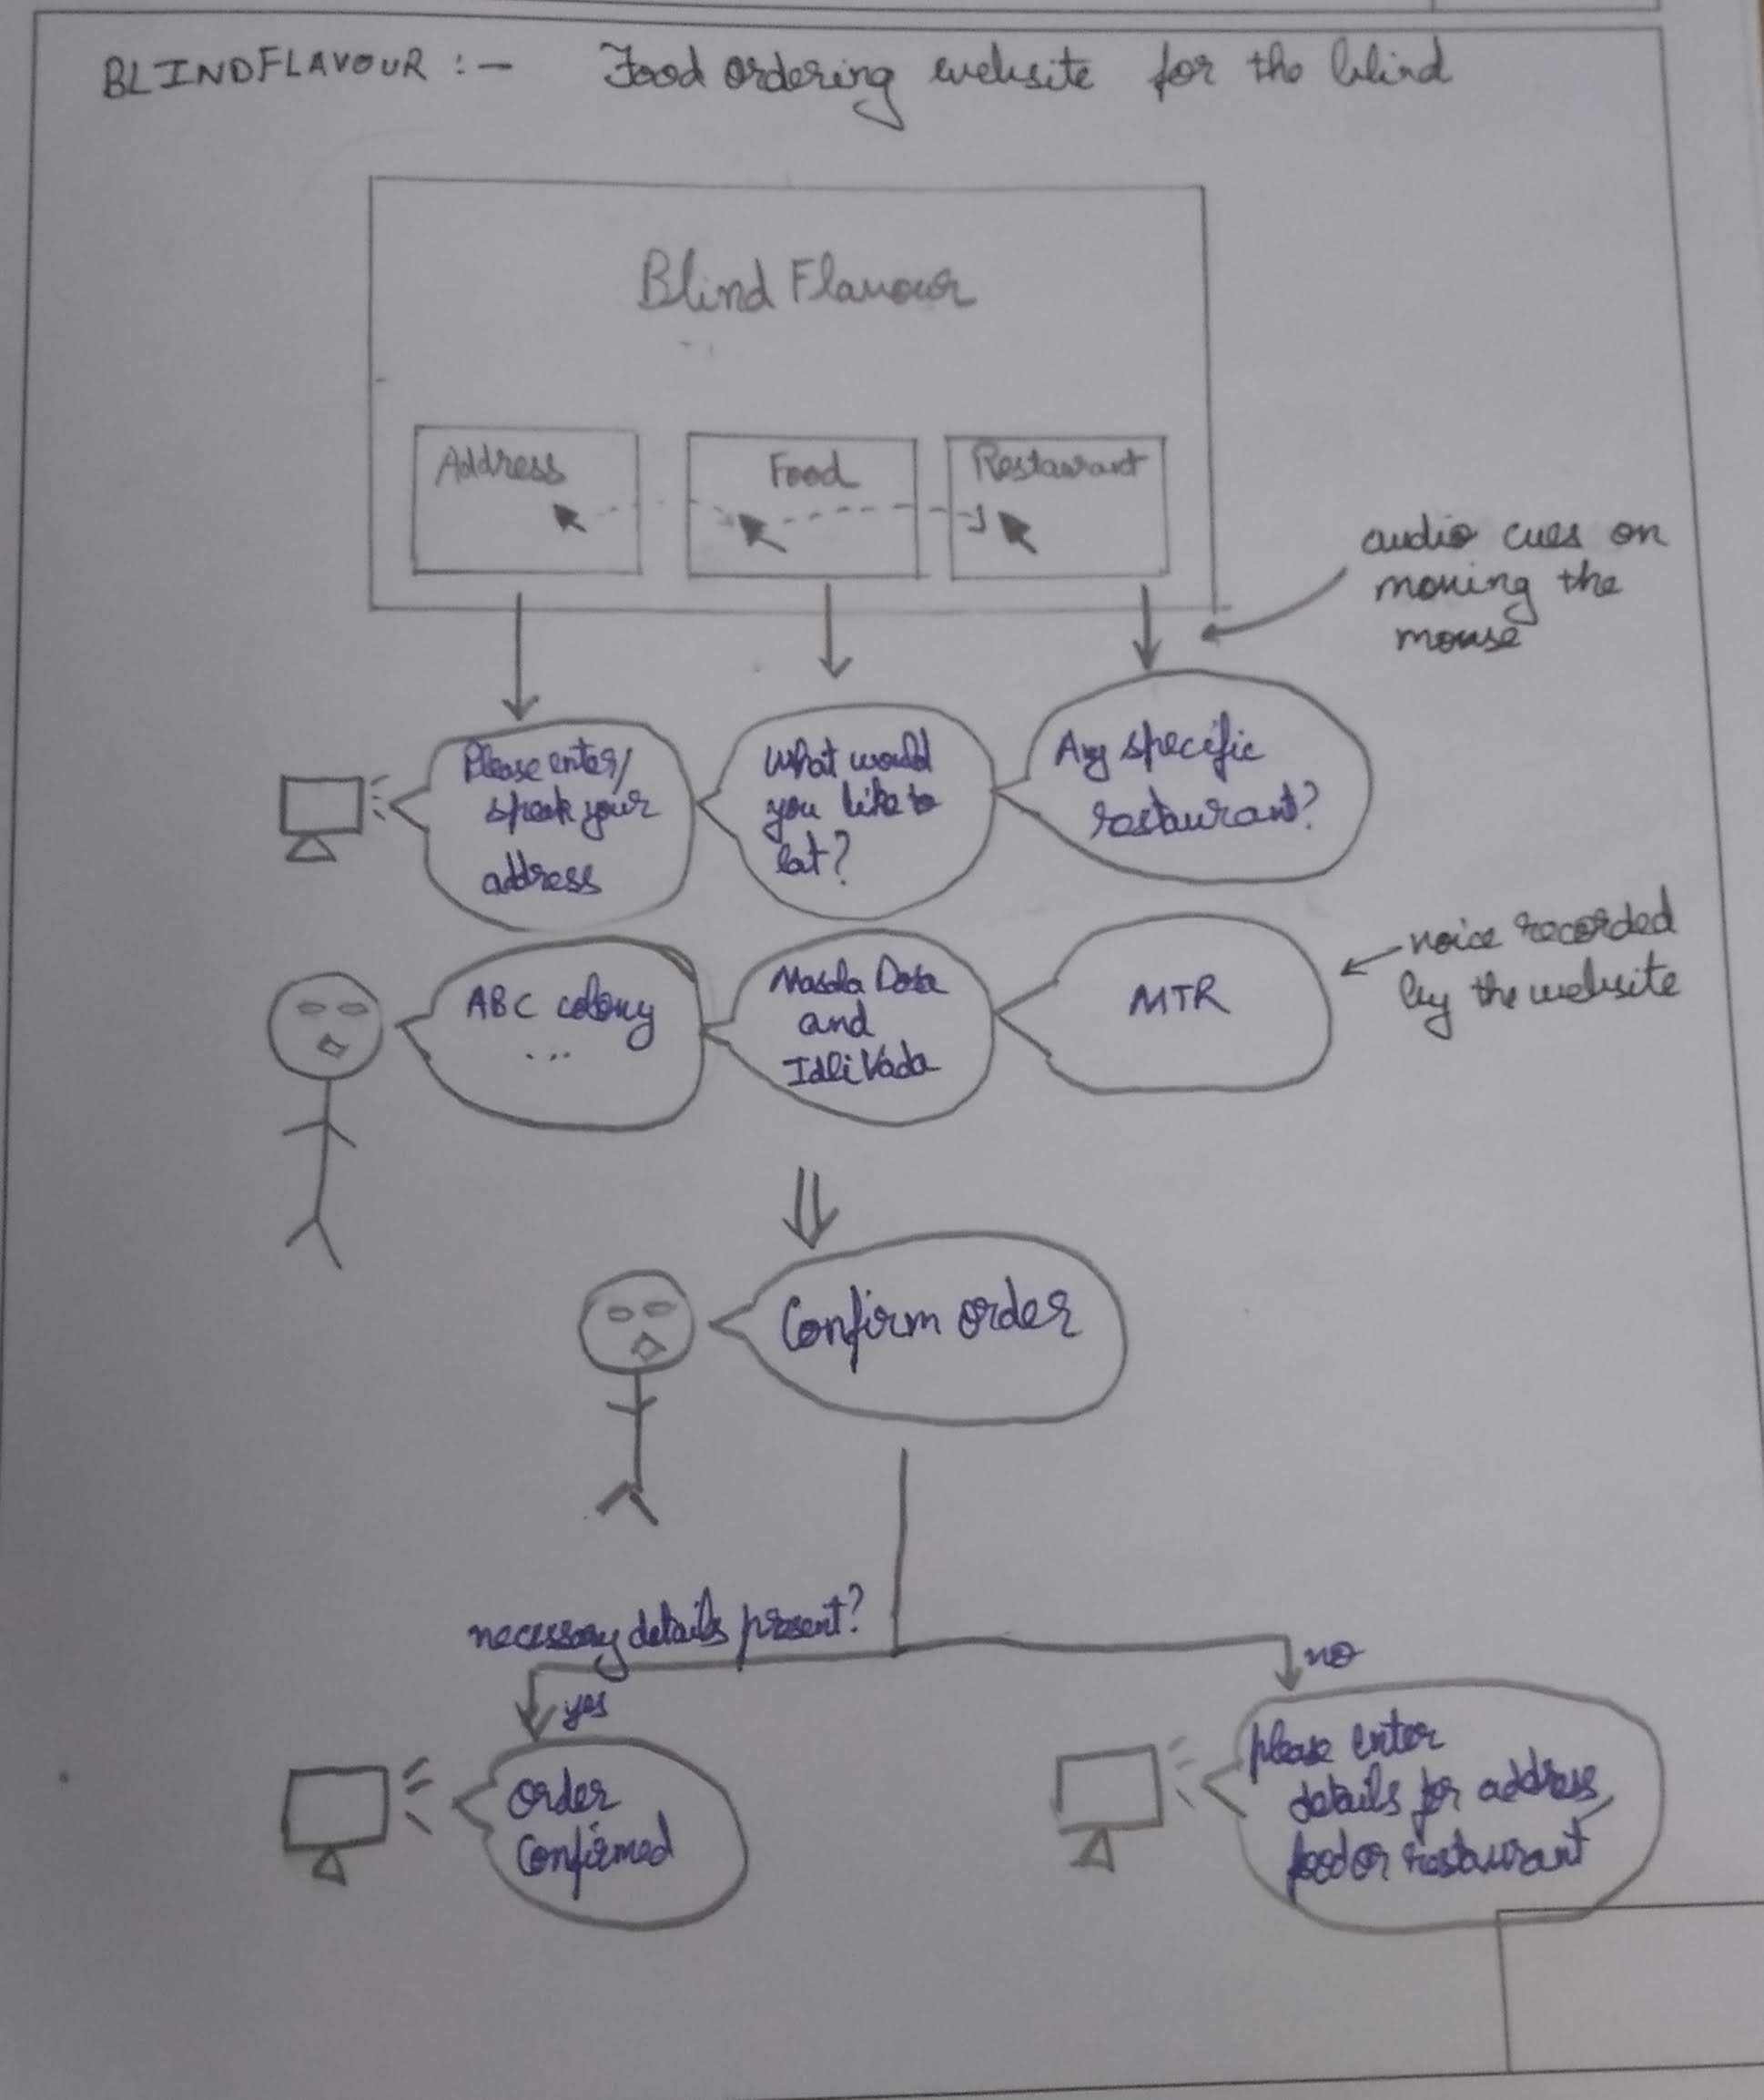 BLINDFLAVOUR :- Food ordering website for the blind
Blind Flavour
Address
Food
Restaurant
audio cues on
moving the
mouse
Please enter/
speak your
address
What would
you like to
eat?
Any specific
restaurant?
ABC colony
...
Masala Dosa
and
Idli Vada
MTR
voice recorded
by the website
Confirm order
necessary details present?
yes
no
Order
Confirmed
please enter
details for address,
food or restaurant